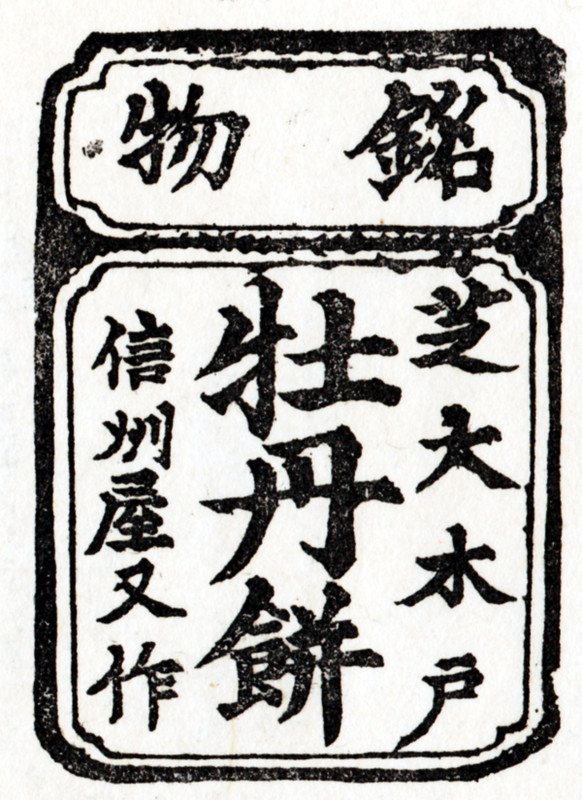 銘物
芝大木戸
牡丹餅
信州屋又作